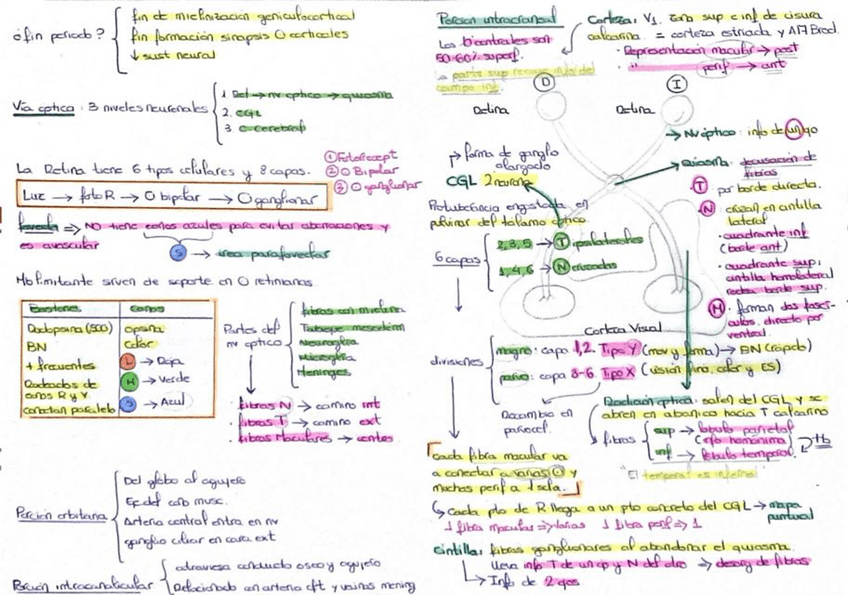 ¿fin periodo?
fin de mielinización geniculocortical
fin formación sinapsis O corticales
↓ sust neural
Vía óptica: 3 niveles neuronales
1 Ret → nv óptico → quiasma
2. CGL
3 C cerebral
La Retina tiene 6 tipos celulares y 8 capas.
① Fotorecept
② O Bipolar
③ O ganglionar
Luz → foto R → O bipolar → O ganglionar
fovela ⇒ NO tiene conos azules para evitar aberraciones y
es avascular
S → área parafoveolar
Mb limitante sirven de soporte en O retinianas.
Bastones
Conos
Rodopsina (500)
opsina
BN
Color
+ frecuentes
L → Roja
Rodeados de
M → Verde
conos R y V
S → Azul
conectan paralelo
Partes del
nv óptico
fibras con mielina
Tabique mesodérm
Neuroglia
Microglia
Meninges
· fibras N → camino int
· fibras T → camino ext
· fibras Maculares → centro
Porción orbitaria
Del globo al agujero
Eje del cono musc.
Arteria central entra en nv
ganglio ciliar en cara ext
Porción intracanalicular
atraviesa conducto óseo y agujero
Relacionado en arteria oft y vainas mening
Porción intracraneal
Los 10 centrales son
50-60% superf.
parte sup recoge info del
campo inf.
Corteza: V1. zona sup e inf de cisura
calcarina = corteza estriada y A17 Brod.
· Representación macular → post
· " perif → ant
D
I
Retina
Retina
→ Nv óptico: info de un ojo
→ Quiasma: decusación de
fibras
T
por borde directa.
N
cruzan en antilla
lateral
· cuadrante inf
(borde ant)
· cuadrante sup:
antilla homolateral
rodea borde sup.
M
· forman dos fascí-
culos. directo por
ventral
forma de ganglio
alargado
CGL 2ª neurona
Protuberancia engastada en
pulvinar del tálamo óptico
6 capas
2,3,5 → T ipsilaterales
1,4,6 → N cruzadas
Corteza Visual
divisiones
magno: capa 1,2. Tipo Y (mov y forma) → BN (rápido)
parvo: capa 3-6 Tipo X (visión fina, color y ES)
Recambio en
parvocel.
Radiación óptica: salen del CGL y se
abren en abanico hacia T calcarino
fibras
sup → lóbulo parietal
(info homónima)
inf → lóbulo temporal.
tb
"El temporal es inferior"
Cada fibra macular va
a conectar a varias O y
muchas perif a 1 sola.
↳ Cada pto de R llega a un pto concreto del CGL → mapa
puntual
1 fibra macular ⇒ varias 1 fibra perif ⇒ 1
cintilla: fibras ganglionares al abandonar el quiasma.
lleva info T de un ojo y N del otro ⇒ desorg de fibras
↳ Info de 2 ojos